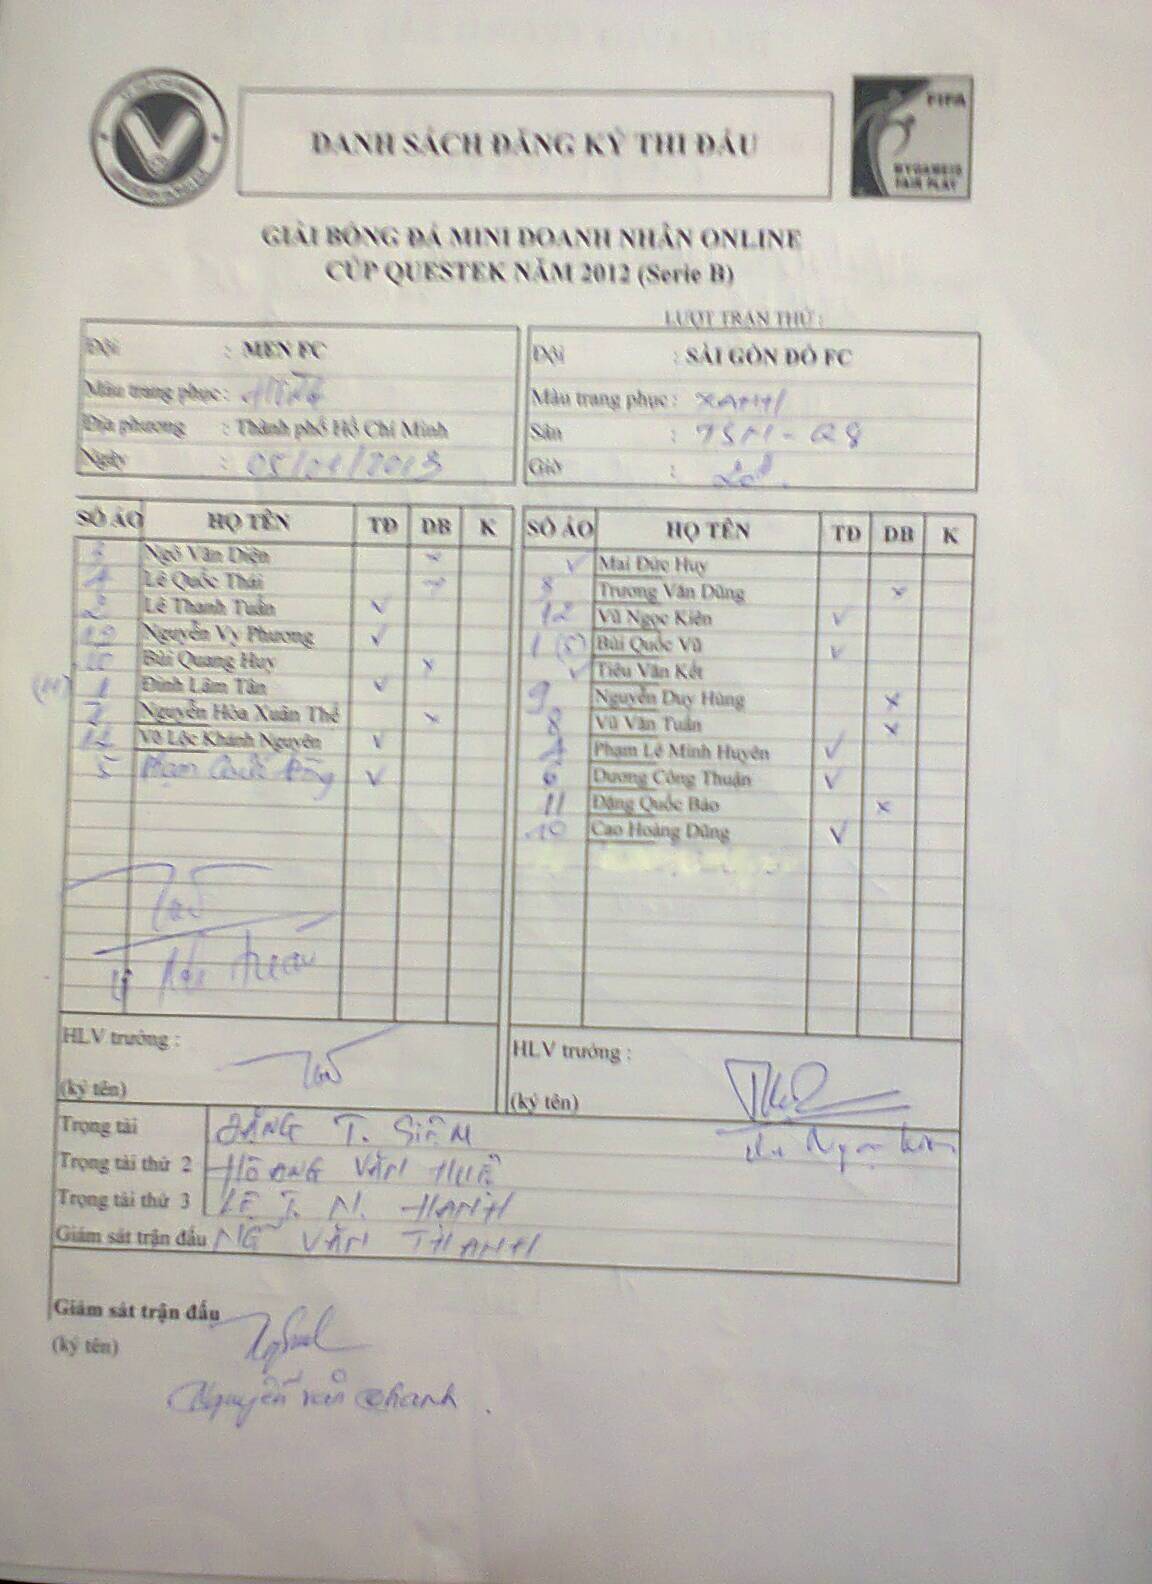 DANH SÁCH ĐĂNG KÝ THI ĐẤU
FIFA
MY GAME IS
FAIR PLAY
GIẢI BÓNG ĐÁ MINI DOANH NHÂN ONLINE
CÚP QUESTEK NĂM 2012 (Serie B)
LƯỢT TRẬN THỨ :
Đội : MEN FC
Màu trang phục :
Địa phương : Thành phố Hồ Chí Minh
Ngày : 05/01/2013
Đội : SÀI GÒN ĐỎ FC
Màu trang phục : XANH
Sân : TSN - Q8
Giờ :
SỐ ÁO HỌ TÊN TĐ DB K
3 Ngô Văn Diện x
4 Lê Quốc Thái
2 Lê Thanh Tuấn √
19 Nguyễn Vy Phương √
10 Bùi Quang Huy x
1 Đinh Lâm Tân √
7 Nguyễn Hòa Xuân Thể x
12 Võ Lộc Khánh Nguyên √
5 Phạm Quốc √
SỐ ÁO HỌ TÊN TĐ DB K
√ Mai Đức Huy
8 Trương Văn Dũng x
12 Vũ Ngọc Kiên √
1 (5) Bùi Quốc Vũ √
√ Tiêu Văn Kết
9 Nguyễn Duy Hùng x
8 Vũ Văn Tuấn x
4 Phạm Lê Minh Huyên √
6 Dương Công Thuận √
11 Đặng Quốc Bảo x
10 Cao Hoàng Dũng √
HLV trưởng :
(ký tên)
HLV trưởng :
(ký tên)
Trọng tài ĐẶNG T. SIÊM
Trọng tài thứ 2 HOÀNG VĂN HUÊ
Trọng tài thứ 3 LÊ T. N. HẠNH
Giám sát trận đấu NG VĂN THANH
Giám sát trận đấu
(ký tên)
Nguyễn văn Thanh